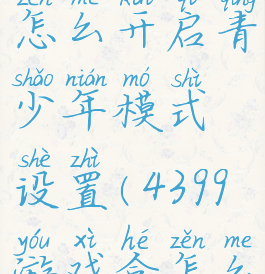 zěn me kāi qǐ qīng
怎么开启青
shǎo nián mó shì
少年模式
shè zhì
设置(4399
yóu xì hé zěn me
游戏盒怎么